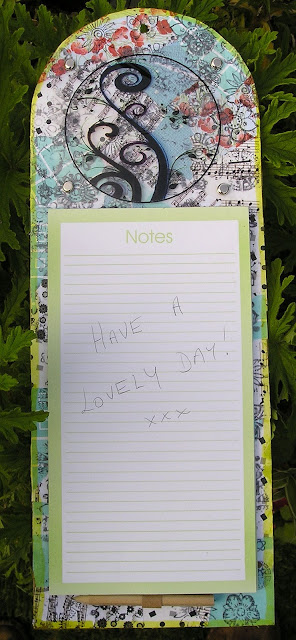 Notes
HAVE A
LOVELY DAY!
xxx